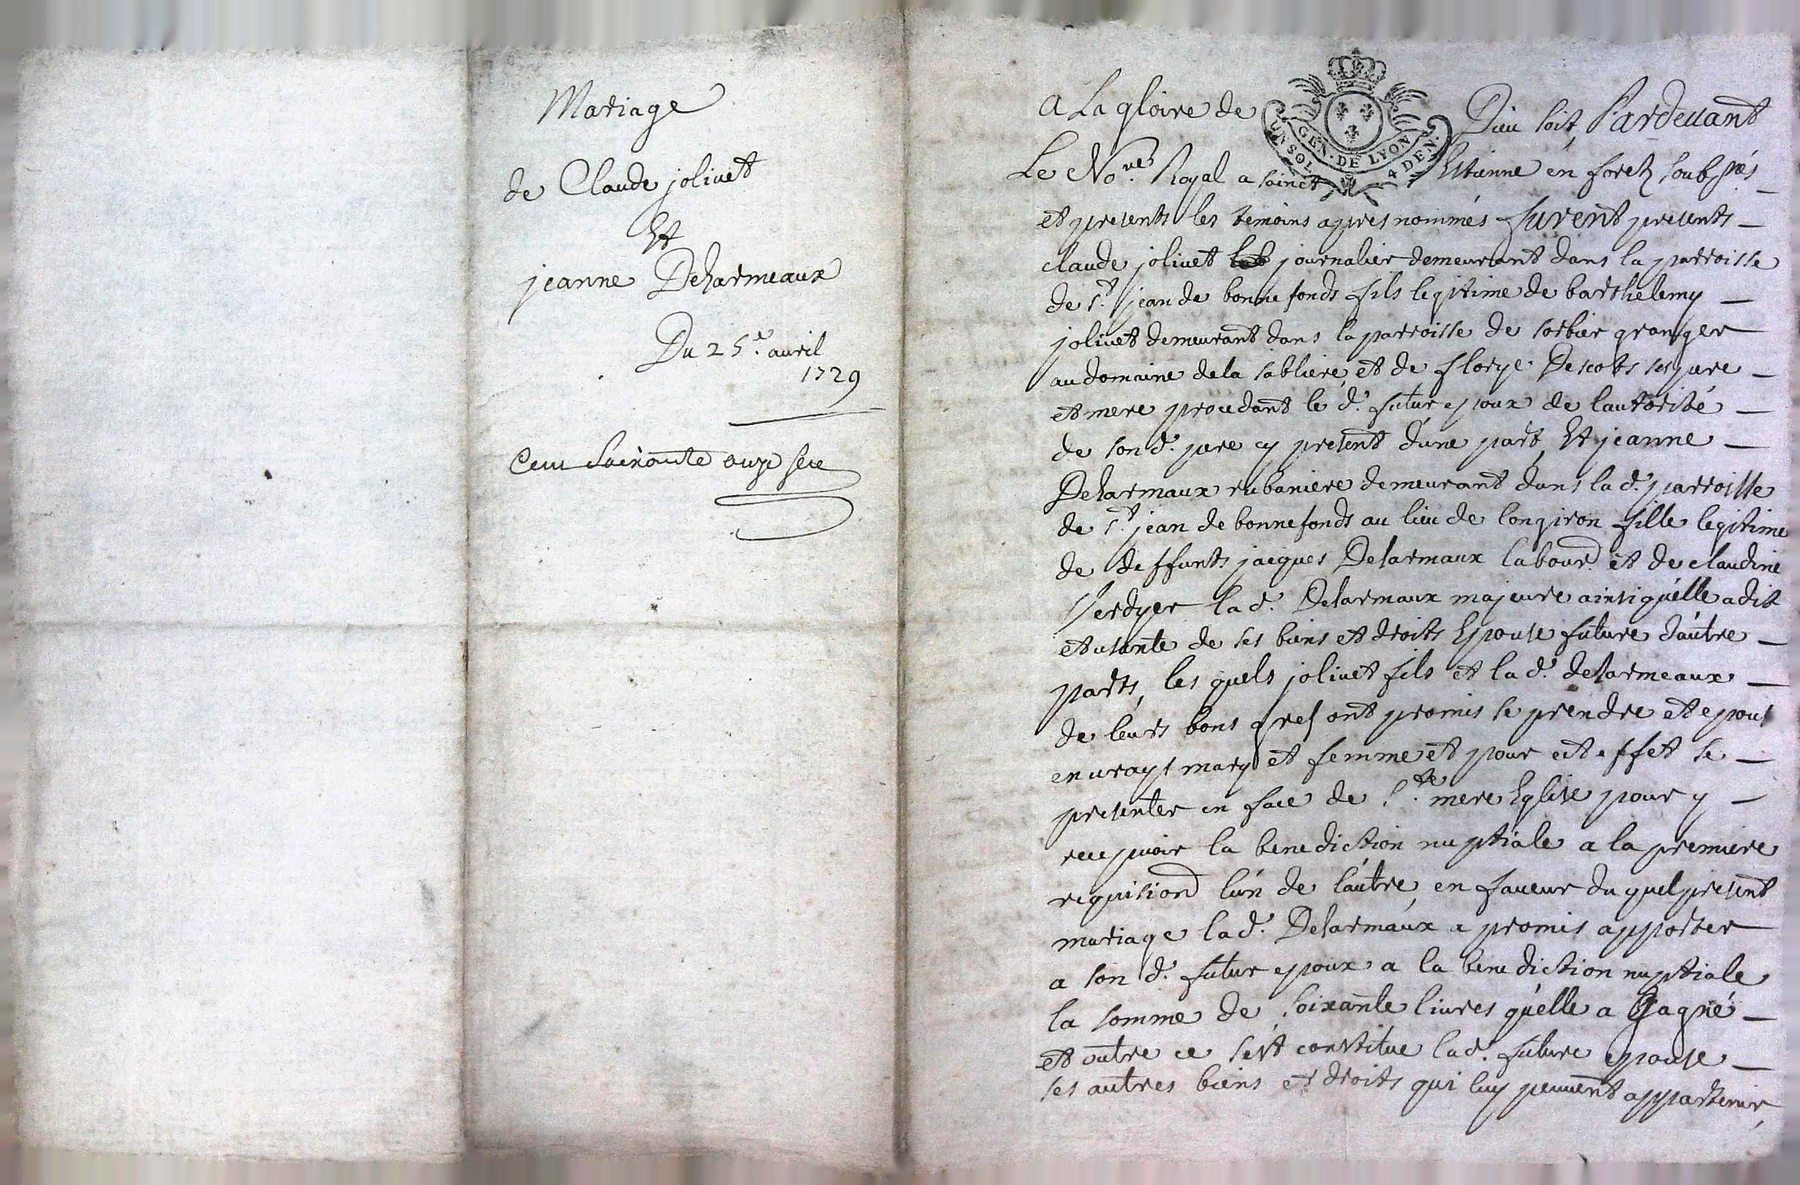 Mariage
de Claude jolivet
Et
jeanne Deharmeaux
Du 25e. avril
1729
Cent Soixante onze
a La gloire de Dieu soit, Pardevant
GEN. DE LYON
UN SOL. 4 DEN.
Le No.re Royal a sainct Estienne en forest soubsnés
et presents les temoins apres nommés furent presents
claude jolivet journalier demeurant dans la parroisse
de St. jean de bonnefonds fils legitime de barthelemy
jolivet demeurant dans la parroisse de sorbier granger
au domaine de la sabliere, et de florye Descots ses pere
et mere procedant le d. futur epoux de lautorité
de son d. pere cy present d'une part, Et jeanne
Deharmaux rubaniere demeurant dans la d. parroisse
de St. jean de bonnefonds au lieu de longiron fille legitime
de deffunts jacques Deharmaux labour et de claudine
Verdyer la d. Deharmaux majeure ainsi qu'elle a dit
et usante de ses biens et droits Epouse future d'autre
parts, les quels jolivet fils et la d. deharmeaux
de leurs bons gres ont promis se prendre et epous
en vrays mary et femme et pour cet effet se
presenter en face de Ste. mere Eglise pour y
recepvoir la benediction nuptiale a la premiere
requision l'un de l'autre, en faveur du quel present
mariage la d. Deharmaux a promis apporter
a son d. futur epoux a la benediction nuptiale
la somme de soixante livres qu'elle a gagné
et outre ce s'est constitue la d. future epouse
ses autres biens et droits qui luy peuvent appartenir,